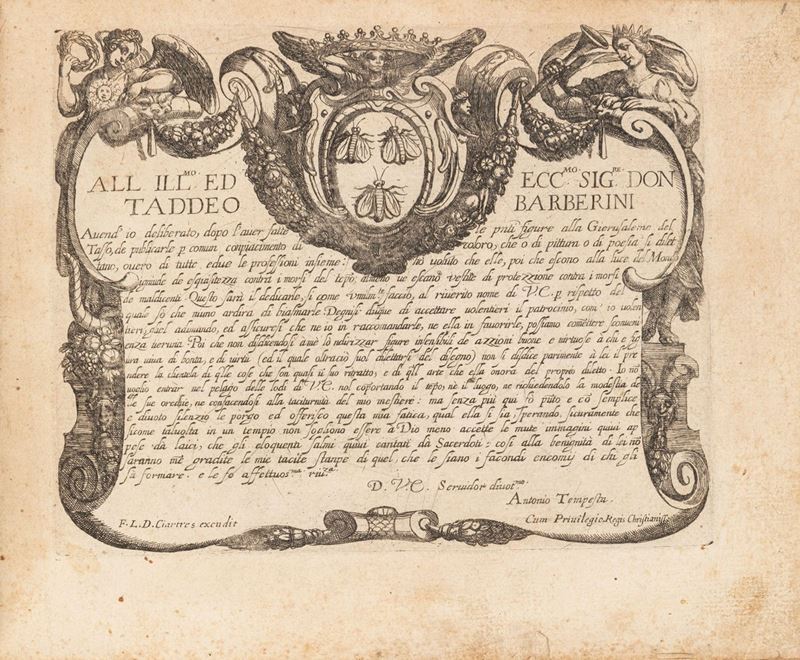 ALL ILL.MO ED ECC.MO SIG.RE DON
TADDEO BARBERINI
Auend' io deliberato, dopo l'auer fatte le pnti figure alla Gierusaleme del
Tasso, de publicarle p comun compiacimento di coloro, che o di pittura o di poesia si dilet
tano, ouero di tutte edue le professioni insieme: hò uoluto che esse, poi che escono alla luce del Mondo
ignude de esquisitezza contra i morsi del tepo, almeno ue escano vestite di protezzione contra i morsi
de maldicenti. Questo sarà il dedicarlo, si come umilm.te faccio, al riuerito nome di V.E. p rispetto del
quale sò che niuno ardirà di biasmarle. Degnisi duque di accettare uolentieri il patrocinio, com' io uolen
tieri gliel adimando, ed assicuresi che ne io in raccomandarle, ne ella in fauorirle, possiamo comettere sconueni
enza ueruna. Poi che non disdicendosi à me lo indirizzar figure insensibili de azzioni buone e uirtuose à chi è fig
ura uiua di bontà, e di uirtù (ed il quale oltraciò suol dilettarsi del disegno) non si disdice parimente à lei il pre
ndere la clientela di q̃lle cose che son quasi il suo ritratto, e di q̃ll arte che ella onora del proprio diletto. Io nõ
uoglio entrar nel pelago delle lodi di V.E. nol coportando il tepo, nè il luogo, ne richiedendolo la modestia de
lle sue orecchie, ne confacendosi alla taciturnità del mio mestiere: ma senza più quì fò püto e cõ semplice
e diuoto silenzio le porgo ed offerisco questa mia fatica, qual ella si sia, sperando, sicuramente che
sicome taluolta in un tempio non sogliono essere à Dio meno accette le mute immagini quiui ap
pese da laici, che gli eloquenti salmi quiui cantati da Sacerdoti: così alla benignità di lei nõ
saranno mẽ gradite le mie tacite stanpe di quel, che le siano i facondi encomij di chi gli
sà formare. e le fò affettuos.ma riu.za
D. V.E. Seruidor diuot.mo
Antonio Tempesta.
F. L. D. Ciartres excudit Cum Priuilegio Regis Christianiss.